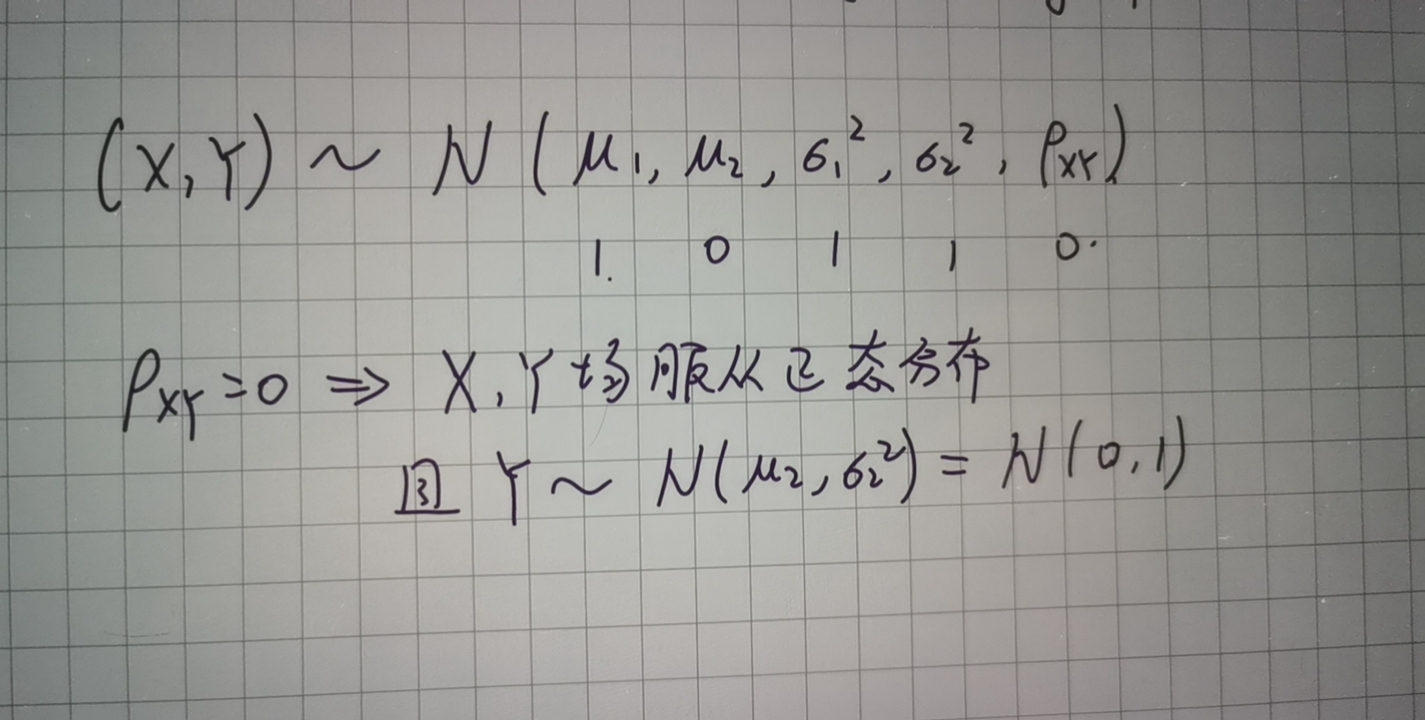 (X, Y) ~ N ( μ₁, μ₂, σ₁², σ₂², ρxʏ)
1. 0 1 1 0.
ρxʏ = 0 ⇒ X, Y 均服从正态分布
且 Y ~ N(μ₂, σ₂²) = N(0, 1)